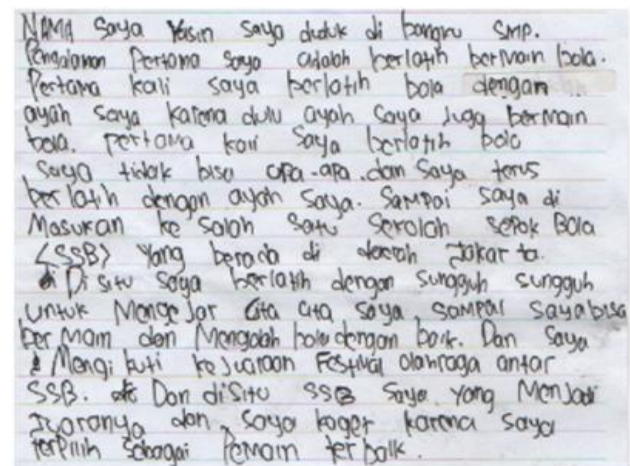 NAMA Saya Yasin saya duduk di bangku SMP.
Pengalaman Pertama saya adalah berlatih bermain bola.
Pertama kali saya berlatih bola dengan
ayah saya karena dulu ayah saya Juga bermain
bola. pertama kali saya berlatih bola
saya tidak bisa apa-apa.dan saya terus
berlatih dengan ayah saya. Sampai saya di
Masukan ke salah satu Sekolah sepak Bola
<SSB> Yang berada di daerah Jakarta.
Di situ saya berlatih dengan sungguh sungguh
untuk Mengejar Cita cita saya, sampai saya bisa
ber Main dan Mengolah bola dengan baik. Dan saya
Mengikuti kejuaraan Festival olahraga antar
SSB. Dan disitu SSB saya yang Menjadi
Juaranya dan, saya kaget karena saya
terpilih sebagai Pemain terbaik.